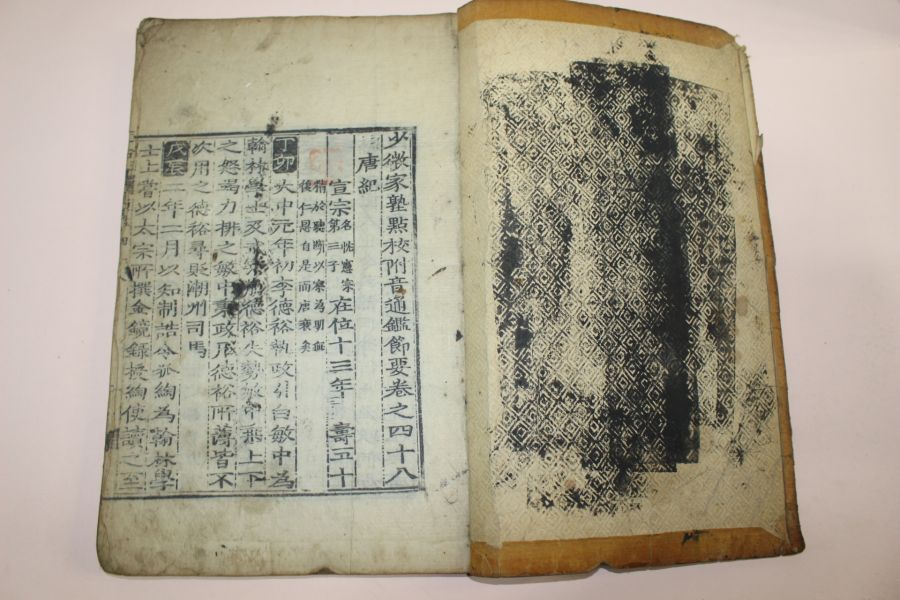 少微家塾點校附音通鑑節要卷之四十八
唐紀
宣宗 名忱憲宗第十三子 在位十三年 壽五十
精於聽斷以察為明無復仁恩自是而唐衰矣
丁卯 大中元年初李德裕執政引白敏中為
翰林學士及 德裕失勢敏中乘上下
之怒竭力排之敏中秉政凡德裕所薄皆不
次用之德裕尋貶潮州司馬
戊辰 二年二月以知制誥令狐綯為翰林學
士上嘗以太宗所撰金鏡錄授綯使讀之至